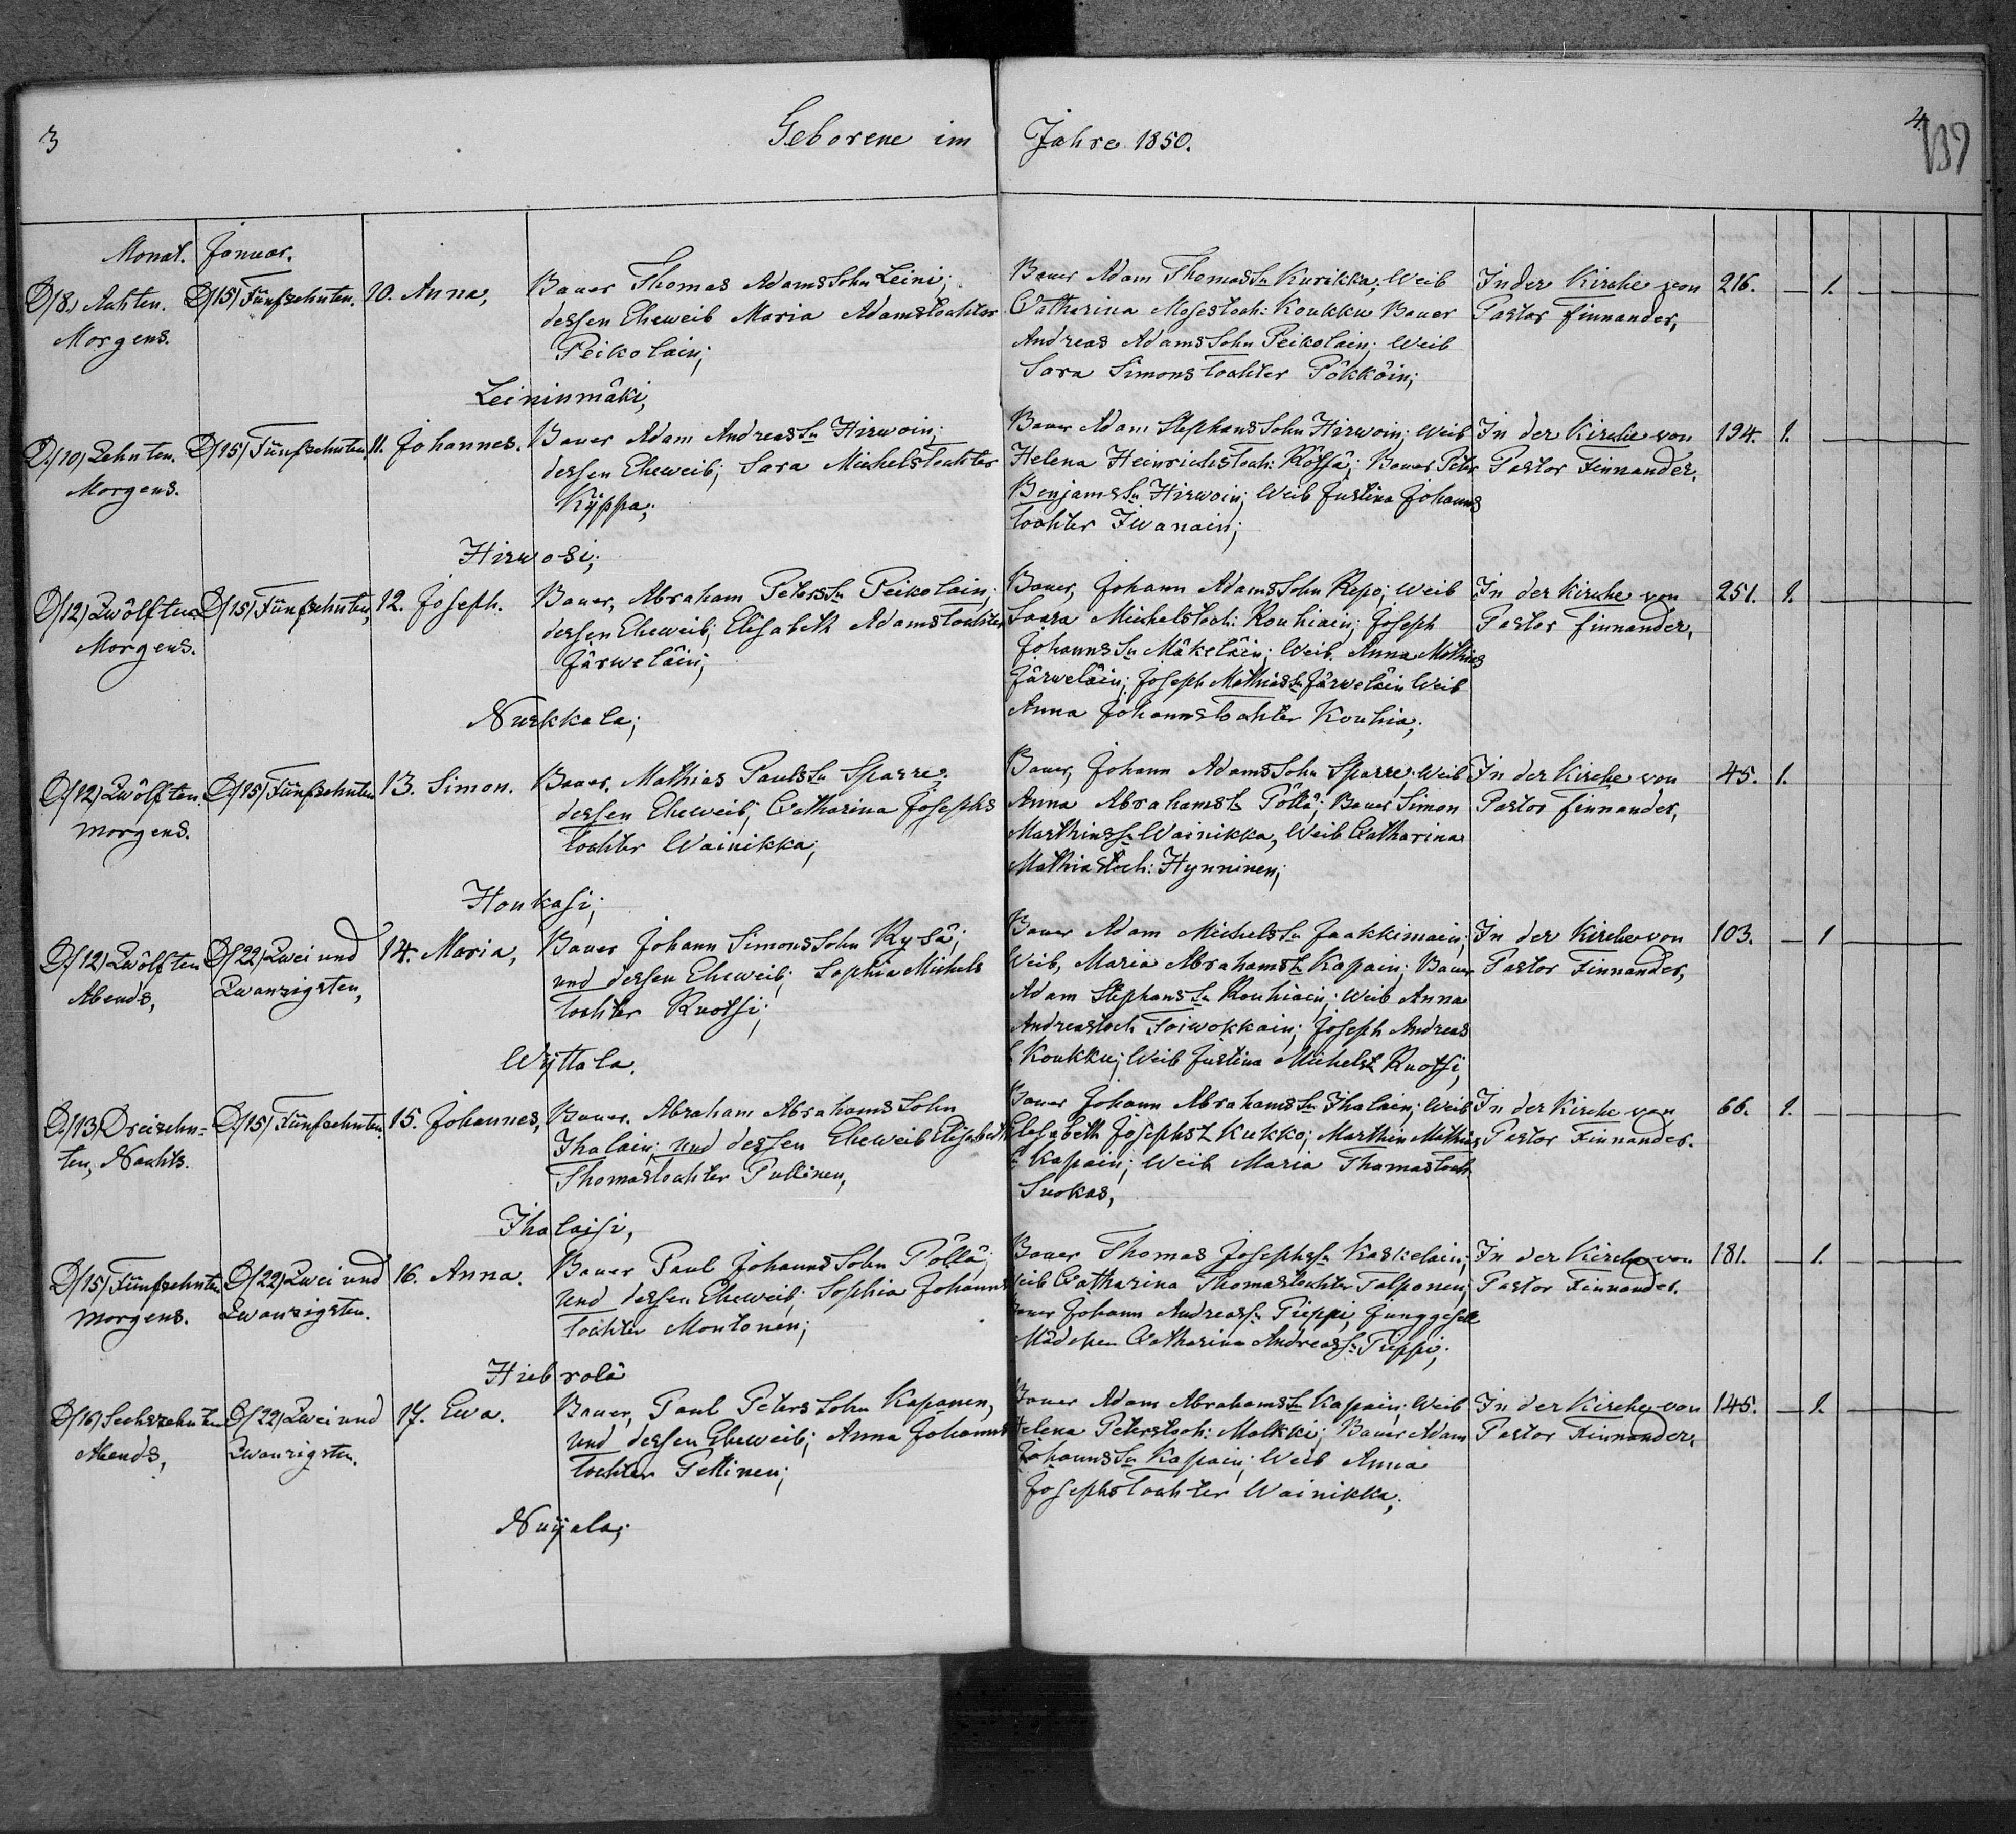 3
Geborene im Jahre 1850.
4.
139
Monat. Januar.
D/8. Achten. D/15) Fünfzehnten. 10. Anna, Bauer Thomas AdamsSohn Leini; Bauer Adam ThomasSn Kurikka; Weib In der Kirche von 216. — 1. — — —
Morgens. dessen Eheweib Maria Adamstochter Catharina Mosestoch: Koukku Bauer Pastor Finnander,
Peikolain; Andreas AdamsSohn Peikolain; Weib
Sara Simonstochter Pökköin;
Leininmäki,
D./10) Zehnten. D/15) Fünfzehnten. 11. Johannes. Bauer Adam AndreasSn Hirwoin; Bauer Adam StephansSohn Hirwoin; Weib In der Kirche von 194. 1.
Morgens. dessen Eheweib; Sara Michelstochter Helena Heinrichstoch: Rötsä; Bauer Peter Pastor Finnander.
Kÿppa; BenjamsSn Hirwoin; Weib Justina Johanns
tochter Iwanain;
Hirwosi;
D/12) Zwölften D/15) Fünfzehnten, 12. Joseph. Bauer, Abraham PetersSn Peikolain; Bauer, Johann AdamsSohn Repo; Weib In der Kirche von 251. 1.
Morgens. dessen Eheweib; Elisabeth Adamstochter Saara Michelstoch: Rouhiain; Joseph Pastor Finnander,
Järweläin; JohannsSn Mäkeläin; Weib. Anna Mathias
Järweläin; Joseph MathiasSn Järweläin Weib
Anna Johannstochter Kouhia;
Nurkkala;
D./12) Zwölften. D/15) Fünfzehnten 13. Simon. Bauer, Mathias PaulsSn Sparre; Bauer, Johann AdamsSohn Sparre Weib In der Kirche von 45. 1.
morgens. dessen Eheweib; Catharina Josephs Anna Abrahamst Pöllä; Bauer Simon Pastor Finnander,
tochter Wainikka; MarthinsSn Wainikka, Weib Catharina
Mathiastoch: Hynninen;
Honkasi;
D./12) Zwölften D/22) Zwei und 14. Maria, Bauer Johann SimonsSohn Rysä; Bauer Adam MichelsSn Jaakkimain; In der Kirche von 103. — 1
Abends, Zwanzigsten, und dessen Eheweib; Sophia Michels Weib, Maria Abrahamst Kapain; Bauer Pastor Finnander,
tochter Ruotsi; Adam StephansSn Rouhiain; Weib Anna
Andreastoch Toiwokkain; Joseph Andreas
Koukku; Weib Justina Michelst Ruotsi,
Wÿttala.
D./13) Dreizehn= D/15) Fünfzehnten. 15. Johannes, Bauer. Abraham AbrahamsSohn Bauer Johann AbrahamsSn Ihalain; Weib In der Kirche von 66. 1. — — — —
ten, Nachts. Ihalain; und dessen Eheweib Elisabeth Elisabeth Josephst Kukko; Marthin Mathias Pastor Finnander.
Thomastochter Pullinen, Sn Kapain; Weib Maria Thomastoch
Suokas,
Ihalaisi,
D/15) Fünfzehnten D/22) Zwei und 16. Anna. Bauer Paul JohannsSohn Pöllä; Bauer Thomas JosephsSn Kaskelain; In der Kirche von 181. — 1. — — —
morgens. Zwanzigsten. und dessen Eheweib; Sophia Johanns Weib Catharina Thomastochter Talponen, Pastor Finnander.
tochter Montonen; Bauer Johann AndreasSn Pieppi, Junggesell
Mädchen Catharina Pieppi;
Hiebrolä
D/16) Sechszehnten D/22) Zwei und 17. Ewa. Bauer, Paul PetersSohn Kapanen, Bauer Adam AbrahamsSn Kapain; Weib In der Kirche von 145. — 1.
Abends, Zwanzigsten. und dessen Eheweib; Anna Johanns Helena Peterstoch: Malkki; Bauer Adam Pastor Finnander,
tochter Pettinen; JohannsSn Kapain; Weib Anna
Josephstochter Wainikka;
Nuijala;